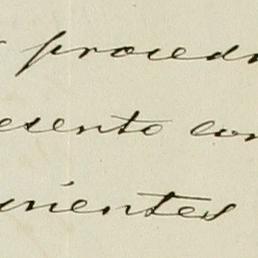 proced
esento con
rientes